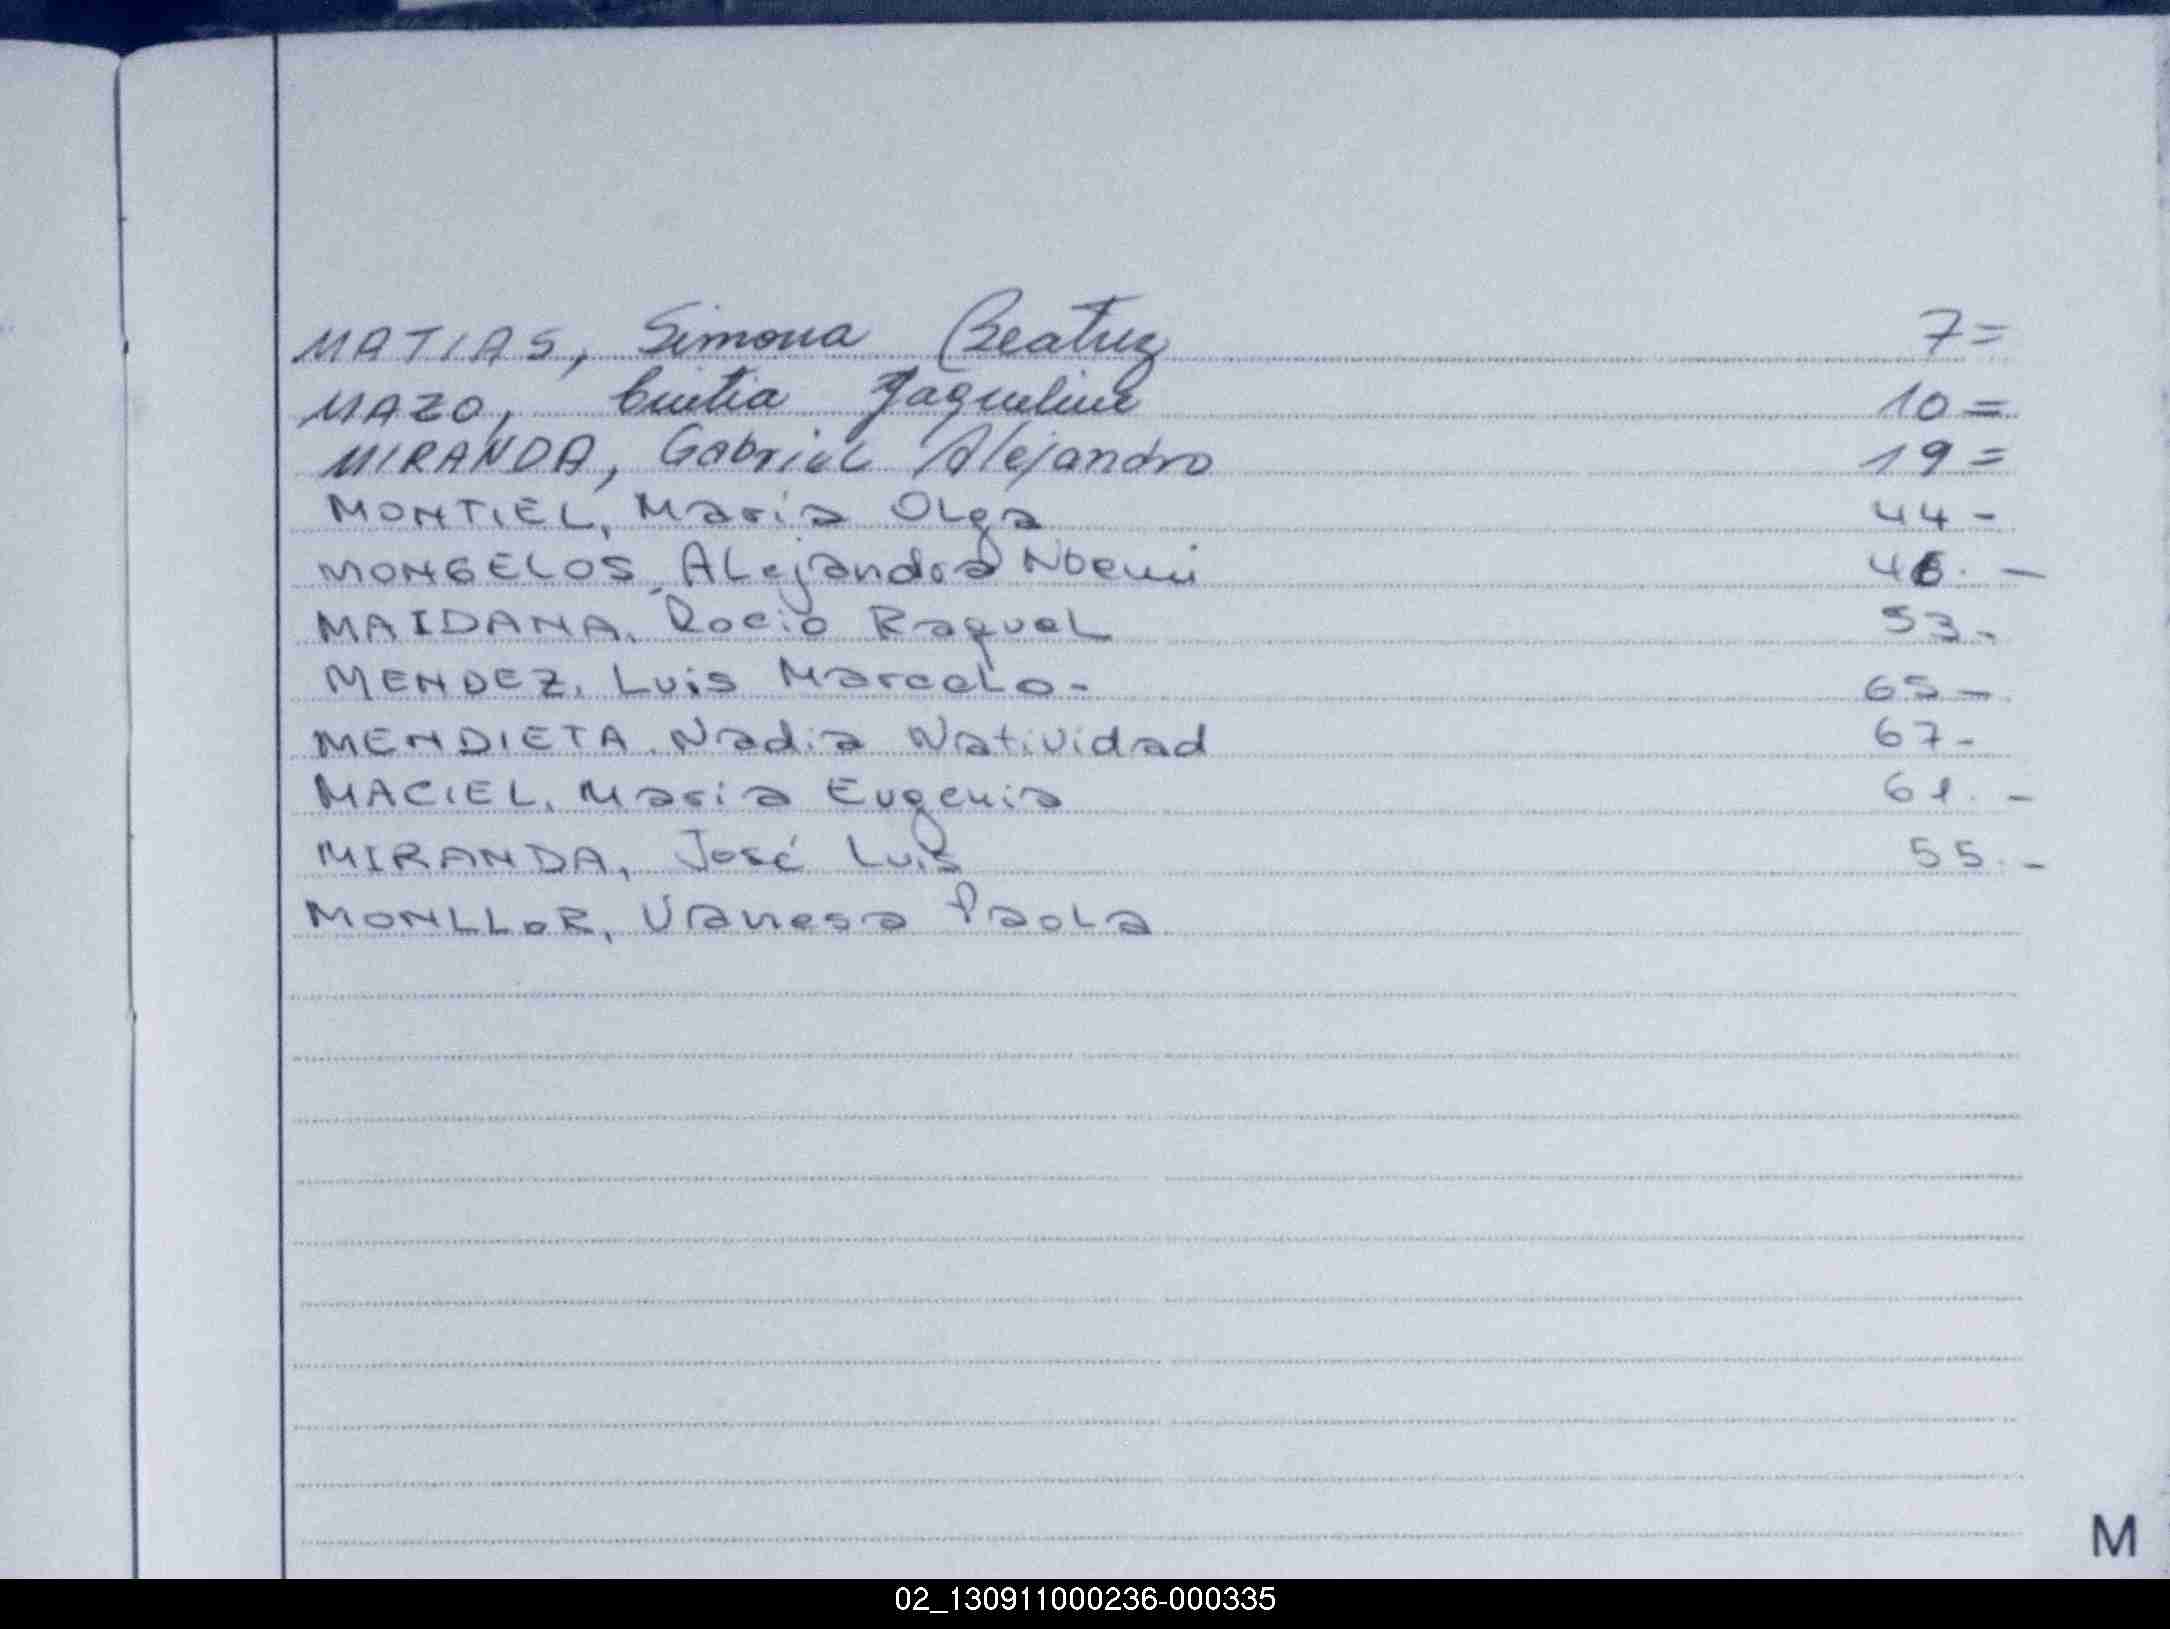 MATIAS, Simona Beatriz 7=
MAZO, Cintia Jaqueline 10=
MIRANDA, Gabriel Alejandro 19=
MONTIEL, Maria Olga 44-
MONGELOS, Alejandra Noemi 46.-
MAIDANA, Rocio Raquel 53.-
MENDEZ, Luis Marcelo- 65-
MENDIETA, Nadia Natividad 67-
MACIEL, Maria Eugenia 61.-
MIRANDA, José Luis 55.-
MONLLOR, Vanesa Paola
M
02_130911000236-000335